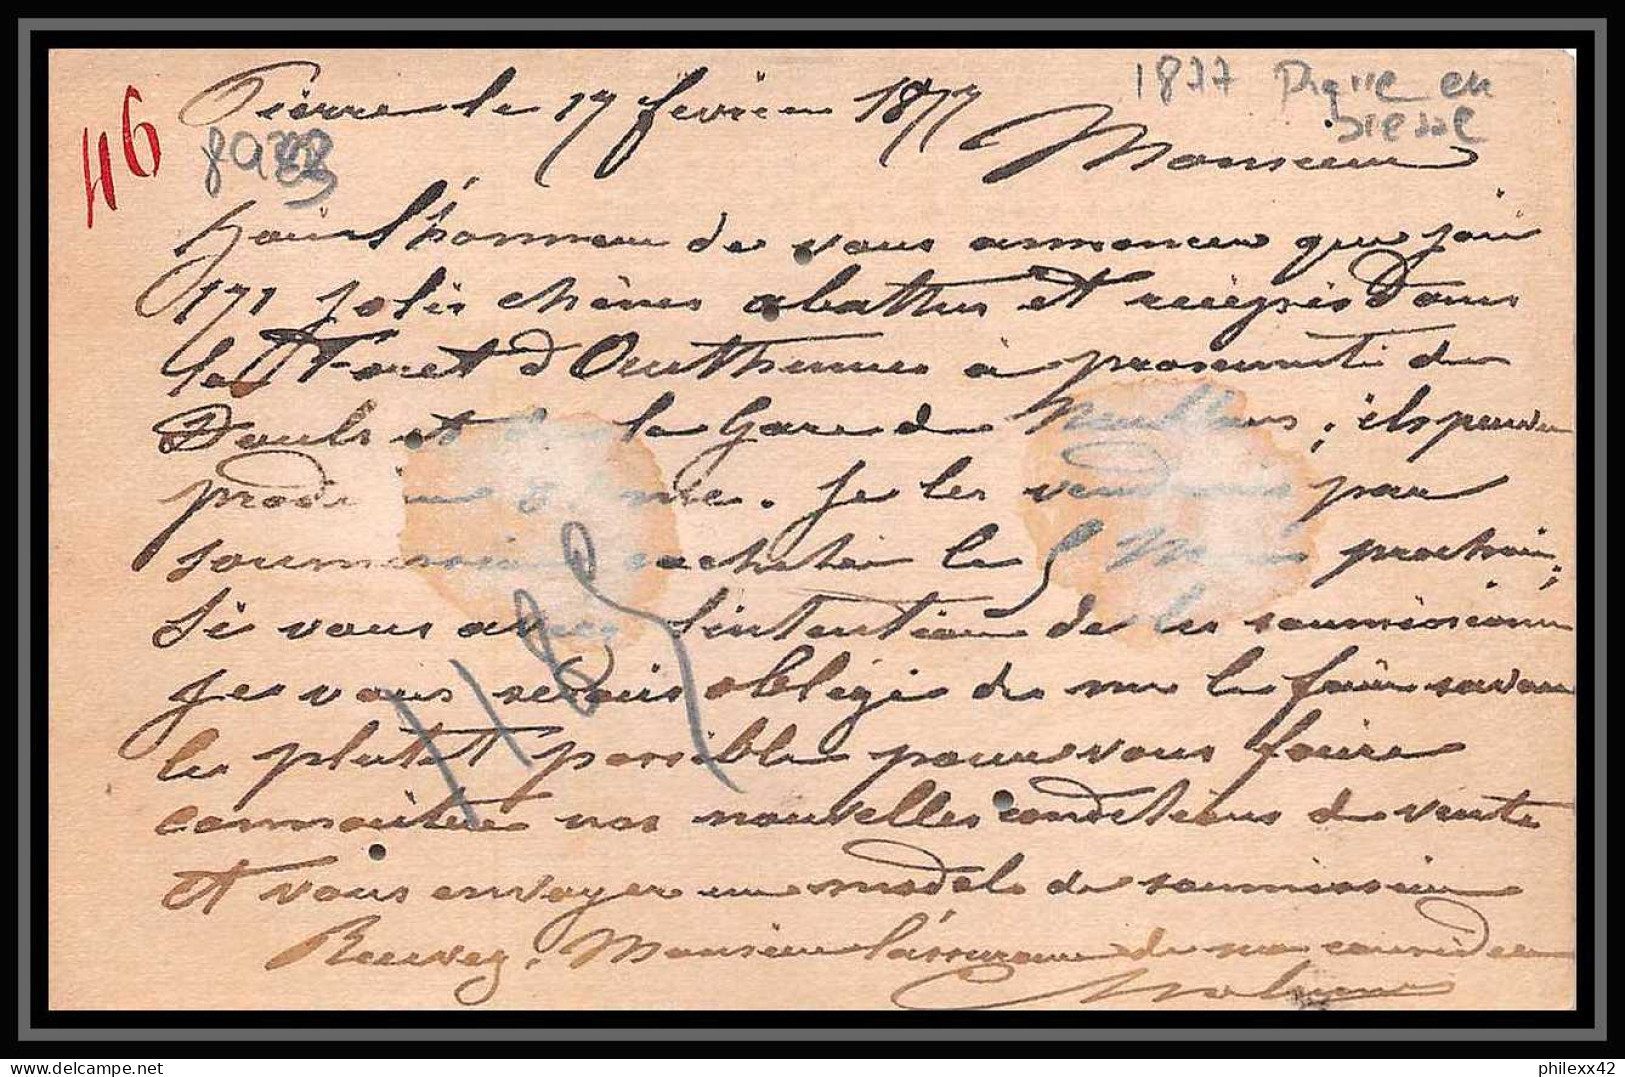 46
Pierre le 17 février 1877
1877 Pierre en
Bresse
Monsieur
J'ai l'honneur de vous annoncer que j'ai
171 jolis chênes abattus et recépés dans
la Foret d' à proximité du
Doubs et de la Gare de Neublans ; ils peuvent
. Je les vendrais par
soumission cachetée le 5 Mars prochain,
Si vous avez l'intention de les soumissionner
Je vous serais obligé de me le faire savoir
le plutot possible pour vous faire
connaitre nos nouvelles conditions de vente
et vous envoyer un model de soumission
Recevez, Monsieur l'assurance de ma consideration
philexx42